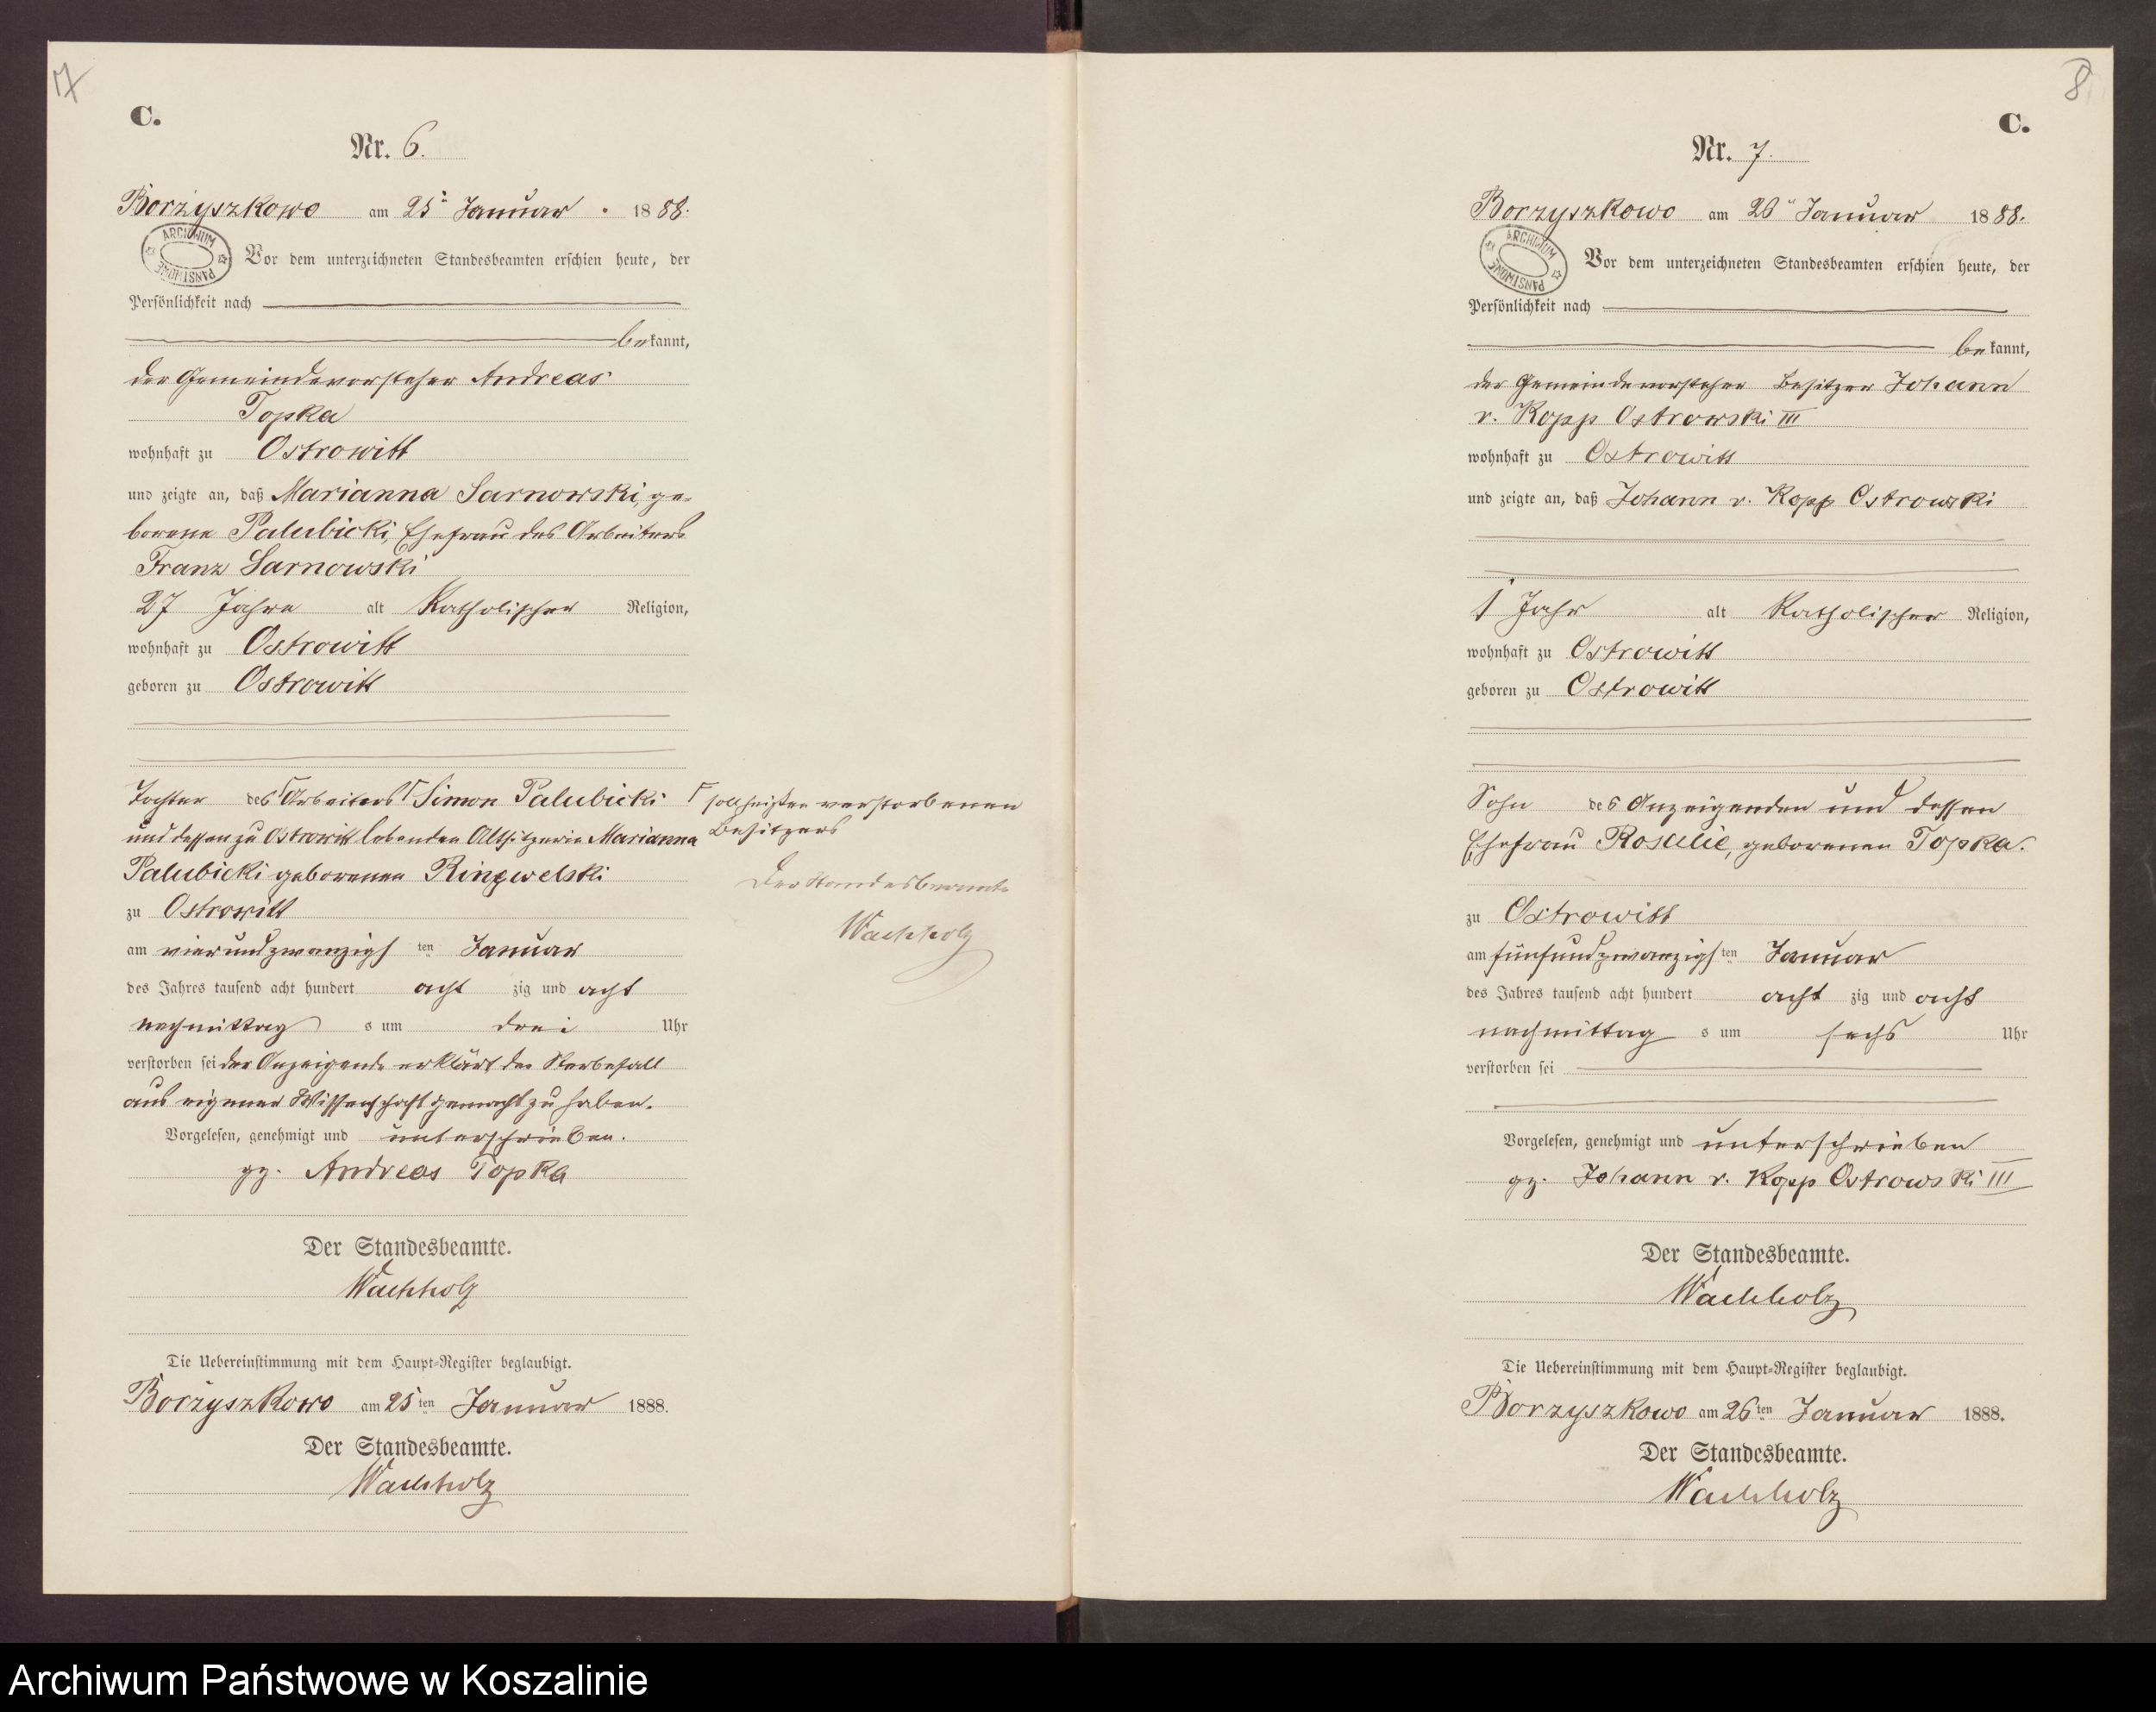 7
C.
Nr. 6.
Borzyszkowo am 25ᵗ Januar 1888.
ARCHIWUM PAŃSTWOWE
Vor dem unterzeichneten Standesbeamten erschien heute, der
Persönlichkeit nach
bekannt,
der Gemeindevorsteher Andreas
Topka
wohnhaft zu Ostrowitt
und zeigte an, daß Marianna Sarnowski, ge-
borene Palubicki, Ehefrau des Arbeiters
Franz Sarnowski
27 Jahre alt Katholischer Religion,
wohnhaft zu Ostrowitt
geboren zu Ostrowitt
Tochter des Arbeiters Simon Palubicki
und dessen zu Ostrowitt lebenden Altsitzerin Marianna
Palubicki geborenen Ringwelski
zu Ostrowitt
am vierundzwanzigsten Januar
des Jahres tausend acht hundert acht zig und acht
nachmittag s um drei Uhr
verstorben sei der Anzeigende erklärt den Sterbefall
aus eigener Wissenschaft gemacht zu haben.
Vorgelesen, genehmigt und unterschrieben.
gz. Andreas Topka
Der Standesbeamte.
Wachholz
Die Uebereinstimmung mit dem Haupt-Register beglaubigt.
Borzyszkowo am 25ten Januar 1888.
Der Standesbeamte.
Wachholz
soll heißen verstorbenen
Besitzers
Der Standesbeamte
Wachholz
8
C.
Nr. 7.
Borzyszkowo am 26 Januar 1888.
ARCHIWUM PAŃSTWOWE
Vor dem unterzeichneten Standesbeamten erschien heute, der
Persönlichkeit nach
bekannt,
der Gemeindevorsteher Besitzer Johann
v. Kopp Ostrowski III
wohnhaft zu Ostrowitt
und zeigte an, daß Johann v. Kopp Ostrowski
1 Jahr alt Katholischer Religion,
wohnhaft zu Ostrowitt
geboren zu Ostrowitt
Sohn des Anzeigenden und dessen
Ehefrau Rosalie, geborenen Topka.
zu Ostrowitt
am fünfundzwanzigsten Januar
des Jahres tausend acht hundert acht zig und acht
nachmittag s um sechs Uhr
verstorben sei
Vorgelesen, genehmigt und unterschrieben
gz. Johann v. Kopp Ostrowski III
Der Standesbeamte.
Wachholz
Die Uebereinstimmung mit dem Haupt-Register beglaubigt.
Borzyszkowo am 26ten Januar 1888.
Der Standesbeamte.
Wachholz
Archiwum Państwowe w Koszalinie